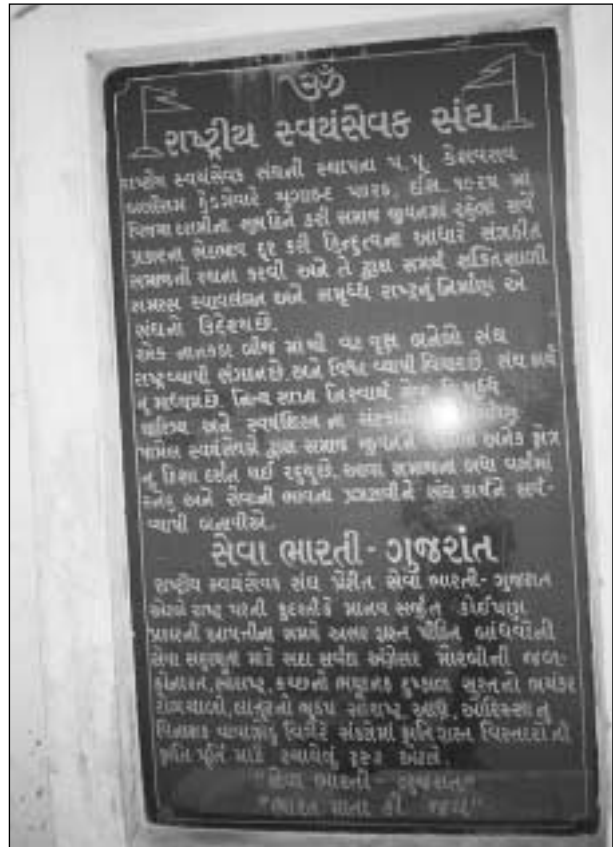 ૐ
રાષ્ટ્રીય સ્વયંસેવક સંઘ
રાષ્ટ્રીય સ્વયંસેવક સંઘની સ્થાપના પ.પૂ. કેશવરાવ
બલીરામ હેડગેવારે યુગાબ્દ ઈ.સ. ૧૯૨૫ માં
વિજયા દશમીના શુભદિને કરી સમાજ જીવનમાં રહેલા સર્વે
પ્રકારના ભેદભાવ દૂર કરી હિન્દુત્વના આધારે સંગઠીત
સમાજની રચના કરવી અને તે દ્વારા સમર્થ શક્તિશાળી
સમરસ સ્વાવલંબન અને સમૃધ્ધ રાષ્ટ્રનું નિર્માણ એ
સંઘનો ઉદેશ્ય છે.
એક નાનકડા બીજ માંથી વટ વૃક્ષ બનેલો સંઘ
રાષ્ટ્રવ્યાપી સંગઠન છે. અને વિશ્વ વ્યાપી વિચાર છે. સંઘ કાર્ય
નું માધ્યમ છે. નિત્ય શાખા નિસ્વાર્થ
ચારિત્ર્ય અને સ્વયંશિસ્ત ના
પામેલ સ્વયંસેવકો દ્વારા સમાજ જીવનને અનેક ક્ષેત્ર
નું દિશા દર્શન થઈ રહ્યુ છે. આવા સમાજના બધા વર્ગમાં
સ્નેહ અને સેવાની ભાવના પ્રગટાવીને સંઘ કાર્યને સર્વ-
વ્યાપી બનાવીએ.
સેવા ભારતી - ગુજરાત
રાષ્ટ્રીય સ્વયંસેવક સંઘ પ્રેરીત સેવા ભારતી - ગુજરાત
એટલે રાષ્ટ્ર પરની કુદરતી કે માનવ સર્જીત કોઈપણ
પ્રકારની આપત્તીના સમયે અસર ગ્રસ્ત પીડિત બાંધવોની
સેવા સહાયતા માટે સદા સર્વદા અગ્રેસર મોરબીની જળ-
હોનારત, સૌરાષ્ટ્ર, કચ્છનો ભયાનક દુષ્કાળ સુરતનો ભયંકર
રોગચાળો, લાતુરનો ભુકંપ સૌરાષ્ટ્ર, આંધ્ર, ઓરિસ્સા નું
વિનાશક વાવાઝોડું વિગેરે સંકટોમાં ક્ષતિગ્રસ્ત વિસ્તારોની
ક્ષતિ પૂર્તિ માટે સ્થાયેલું ટ્રસ્ટ એટલે.
"સેવા ભારતી - ગુજરાત"
"ભારત માતા કી જય"